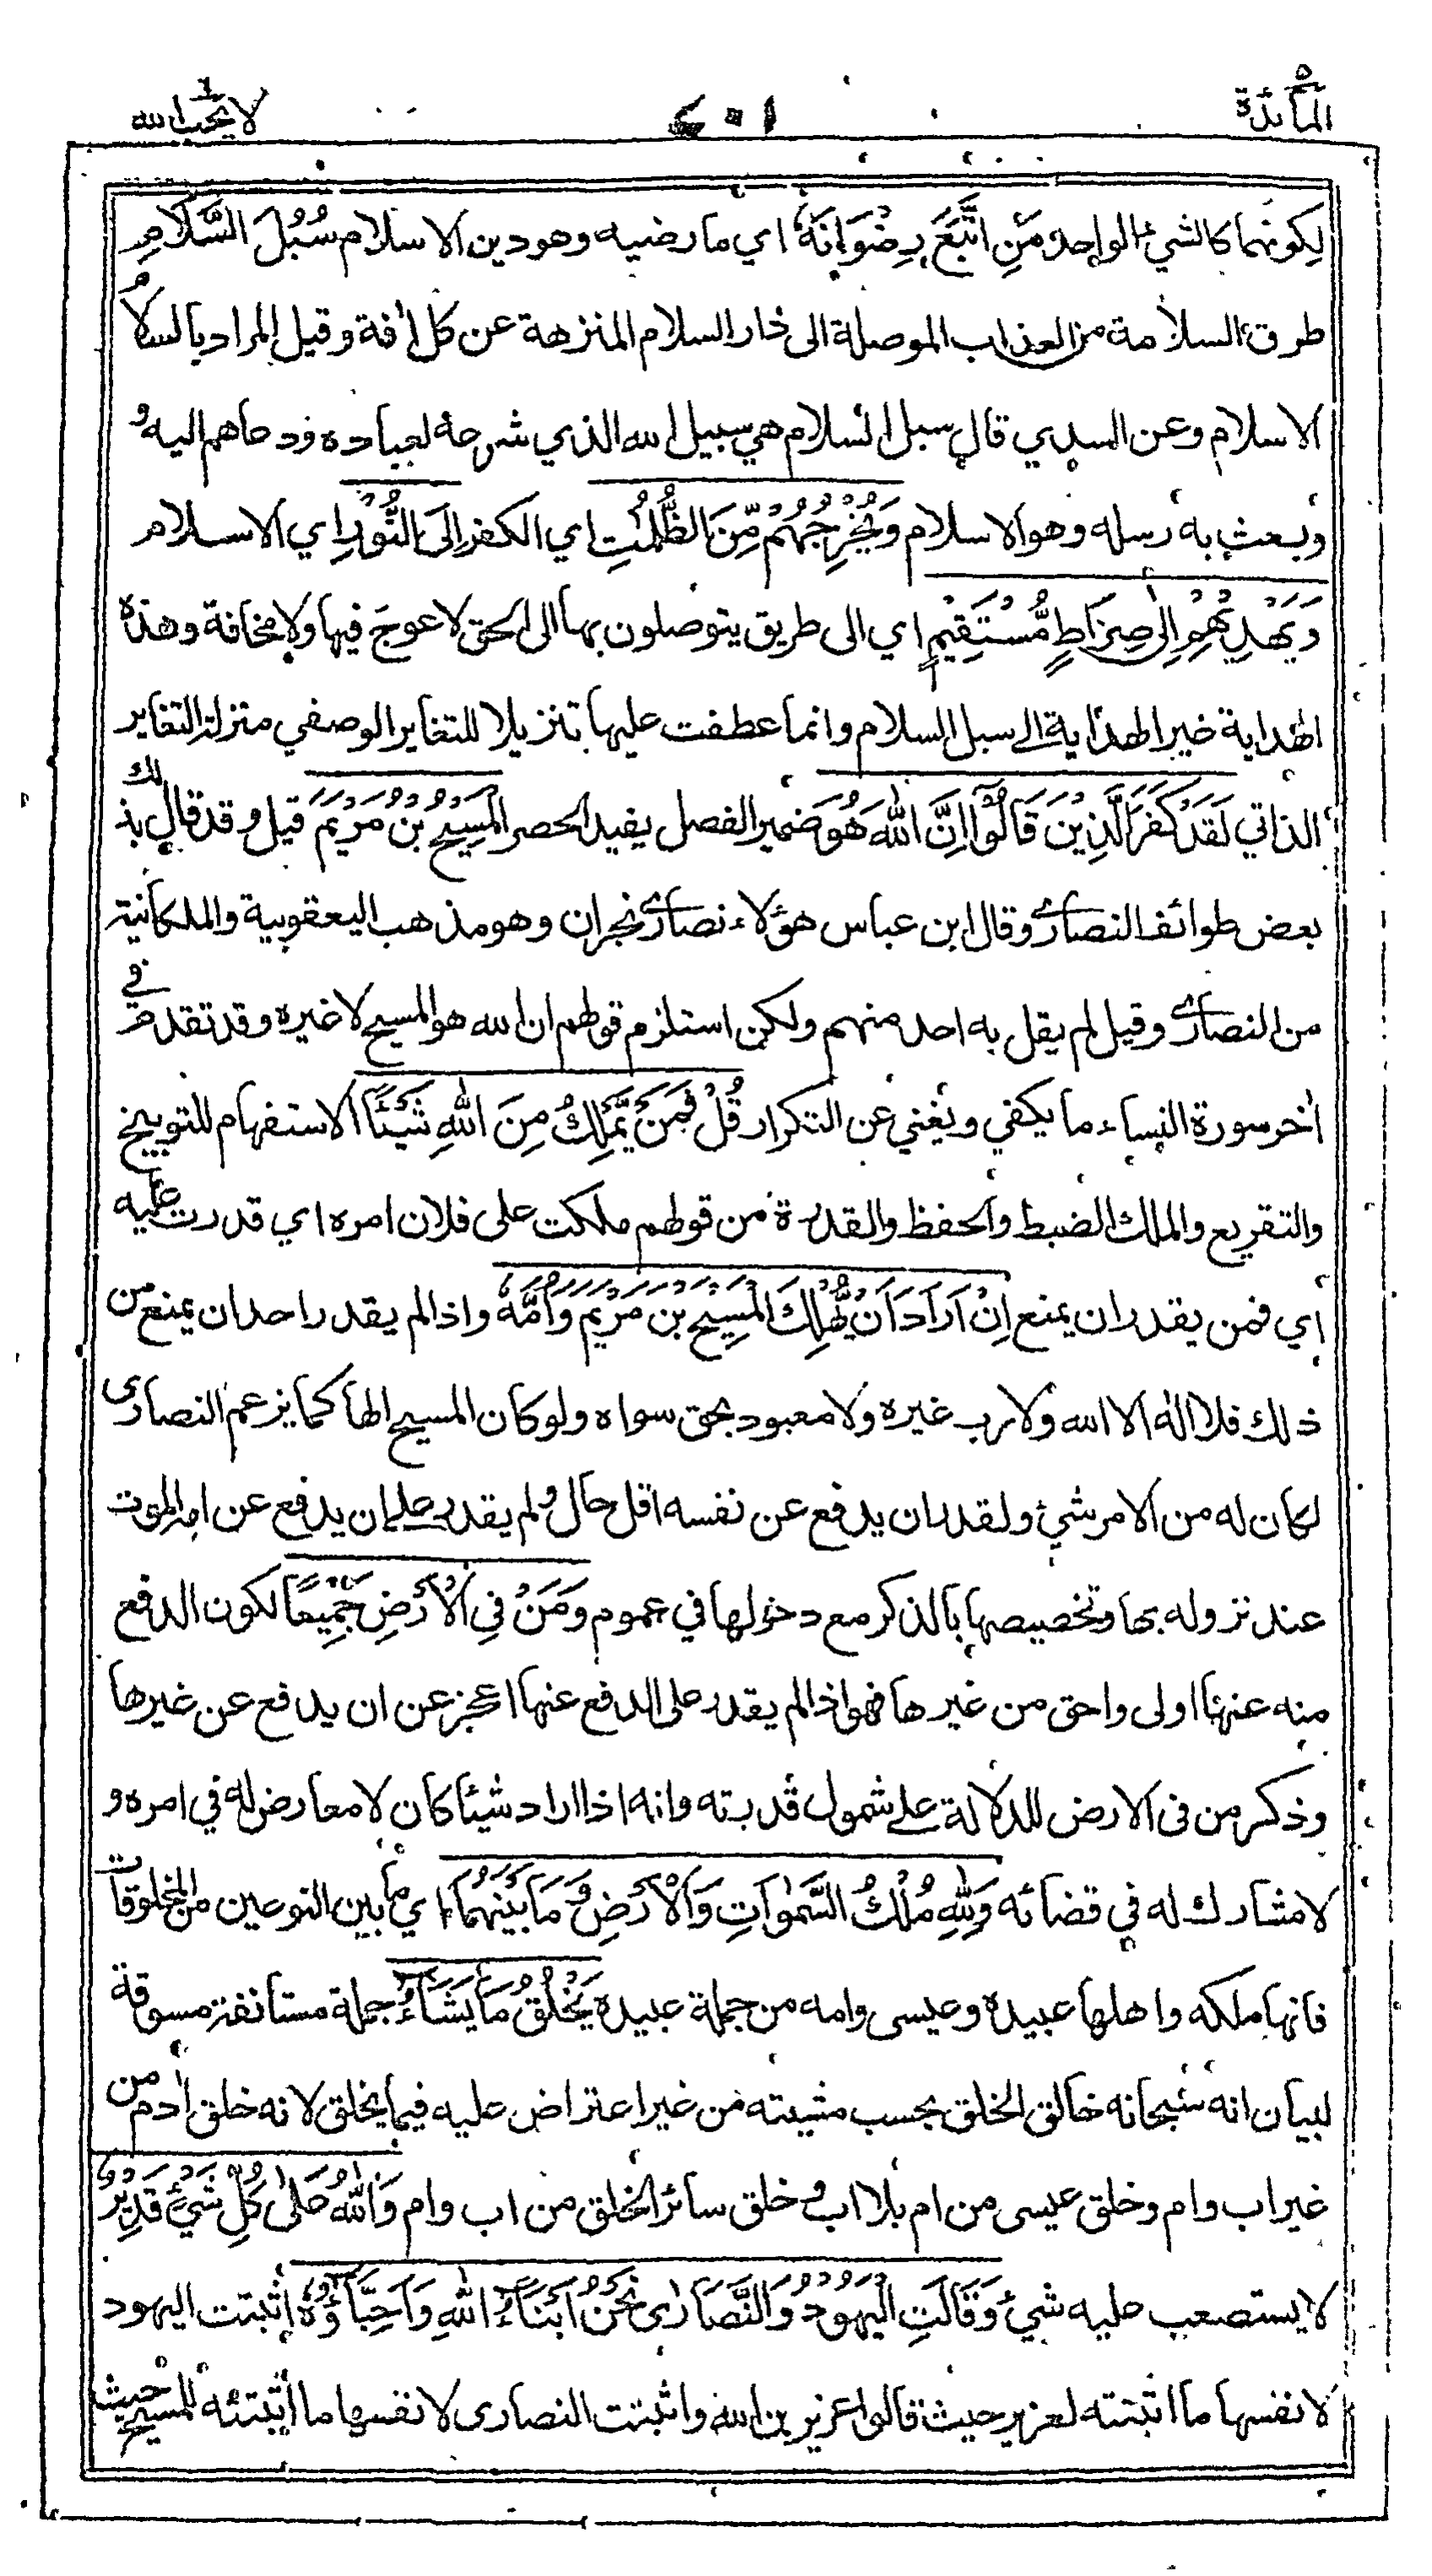 المائدة ٥
١٠٦
لا يحب الله ٦
لكونهما كالشيء الواحد مَنِ اتَّبَعَ رِضْوَانَهُ اي ما رضيه وهو دين الاسلام سُبُلَ السَّلَامِ
طرق السلامة من العذاب الموصلة الى دار السلام المنزهة عن كل اٰفة وقيل المراد بالسلام
الاسلام وعن السدي قال سبل السلام هي سبيل الله الذي شرعه لعباده ودعاهم اليه
وبعث به رسله وهو الاسلام وَيُخْرِجُهُمْ مِّنَ الظُّلُمٰتِ اي الكفر اِلَى النُّوْرِ اي الاسلام
وَيَهْدِيْهِمْ اِلٰى صِرَاطٍ مُّسْتَقِيْمٍ اي الى طريق يتوصلون بها الى الحق لا عوج فيها ولا مخافة وهذه
الهداية غير الهداية الى سبل السلام وانما عطفت عليها تنزيلا للتغاير الوصفي منزلة التغاير
الذاتي لَقَدْ كَفَرَ الَّذِيْنَ قَالُوْا اِنَّ اللهَ هُوَ ضمير الفصل يفيد الحصر الْمَسِيْحُ بن مَرْيَمَ قيل وقد قال بذلك
بعض طوائف النصارى وقال ابن عباس هؤلاء نصارى نجران وهو مذهب اليعقوبية والملكانية
من النصارى وقيل لم يقل به احد منهم ولكن استلزم قولهم ان الله هو المسيح لا غيره وقد تقدم في
اٰخر سورة النساء ما يكفي ويغني عن التكرار قُلْ فَمَنْ يَّمْلِكُ مِنَ اللهِ شَيْـًٔا الاستفهام للتوبيخ
والتقريع والملك الضبط والحفظ والقدرة من قولهم ملكت على فلان امره اي قدرت عليه
اي فمن يقدر ان يمنع اِنْ اَرَادَ اَنْ يُّهْلِكَ الْمَسِيْحَ بن مَرْيَمَ وَاُمَّهُ واذا لم يقدر احد ان يمنع من
ذلك فلا اله الا الله ولا رب غيره ولا معبود بحق سواه ولو كان المسيح الها كما يزعم النصارى
لكان له من الامر شيء ولقدر ان يدفع عن نفسه اقل حال ولم يقدر على ان يدفع عن امه الموت
عند نزوله بها وتخصيصها بالذكر مع دخولها في عموم وَمَنْ فِي الْاَرْضِ جَمِيْعًا لكون الدفع
منه عنها اولى واحق من غيرها فهو اذا لم يقدر على الدفع عنها اعجز عن ان يدفع عن غيرها
وذكر من في الارض للدلالة على شمول قدرته وانه اذا اراد شيئا كان لا معارض له في امره و
لا مشارك له في قضائه وَلِلّٰهِ مُلْكُ السَّمٰوَاتِ وَالْاَرْضِ وَمَا بَيْنَهُمَا اي ما بين النوعين من المخلوقات
فانها ملكه واهلها عبيده وعيسى وامه من جملة عبيده يَخْلُقُ مَا يَشَاءُ جملة مستانفة مسوقة
لبيان انه سبحانه خالق الخلق بحسب مشيته من غير اعتراض عليه فيما يخلق لانه خلق اٰدم من
غير اب وام وخلق عيسى من ام بلا اب وخلق سائر الخلق من اب وام وَاللهُ عَلٰى كُلِّ شَيْءٍ قَدِيْرٌ
لا يستصعب عليه شيء وَقَالَتِ الْيَهُوْدُ وَالنَّصَارٰى نَحْنُ اَبْنَاءُ اللهِ وَاَحِبَّاؤُهُ اثبتت اليهود
لانفسها ما اثبتته لعزير حيث قالوا عزير بن الله واثبتت النصارى لانفسها ما اثبتته للمسيح حيث